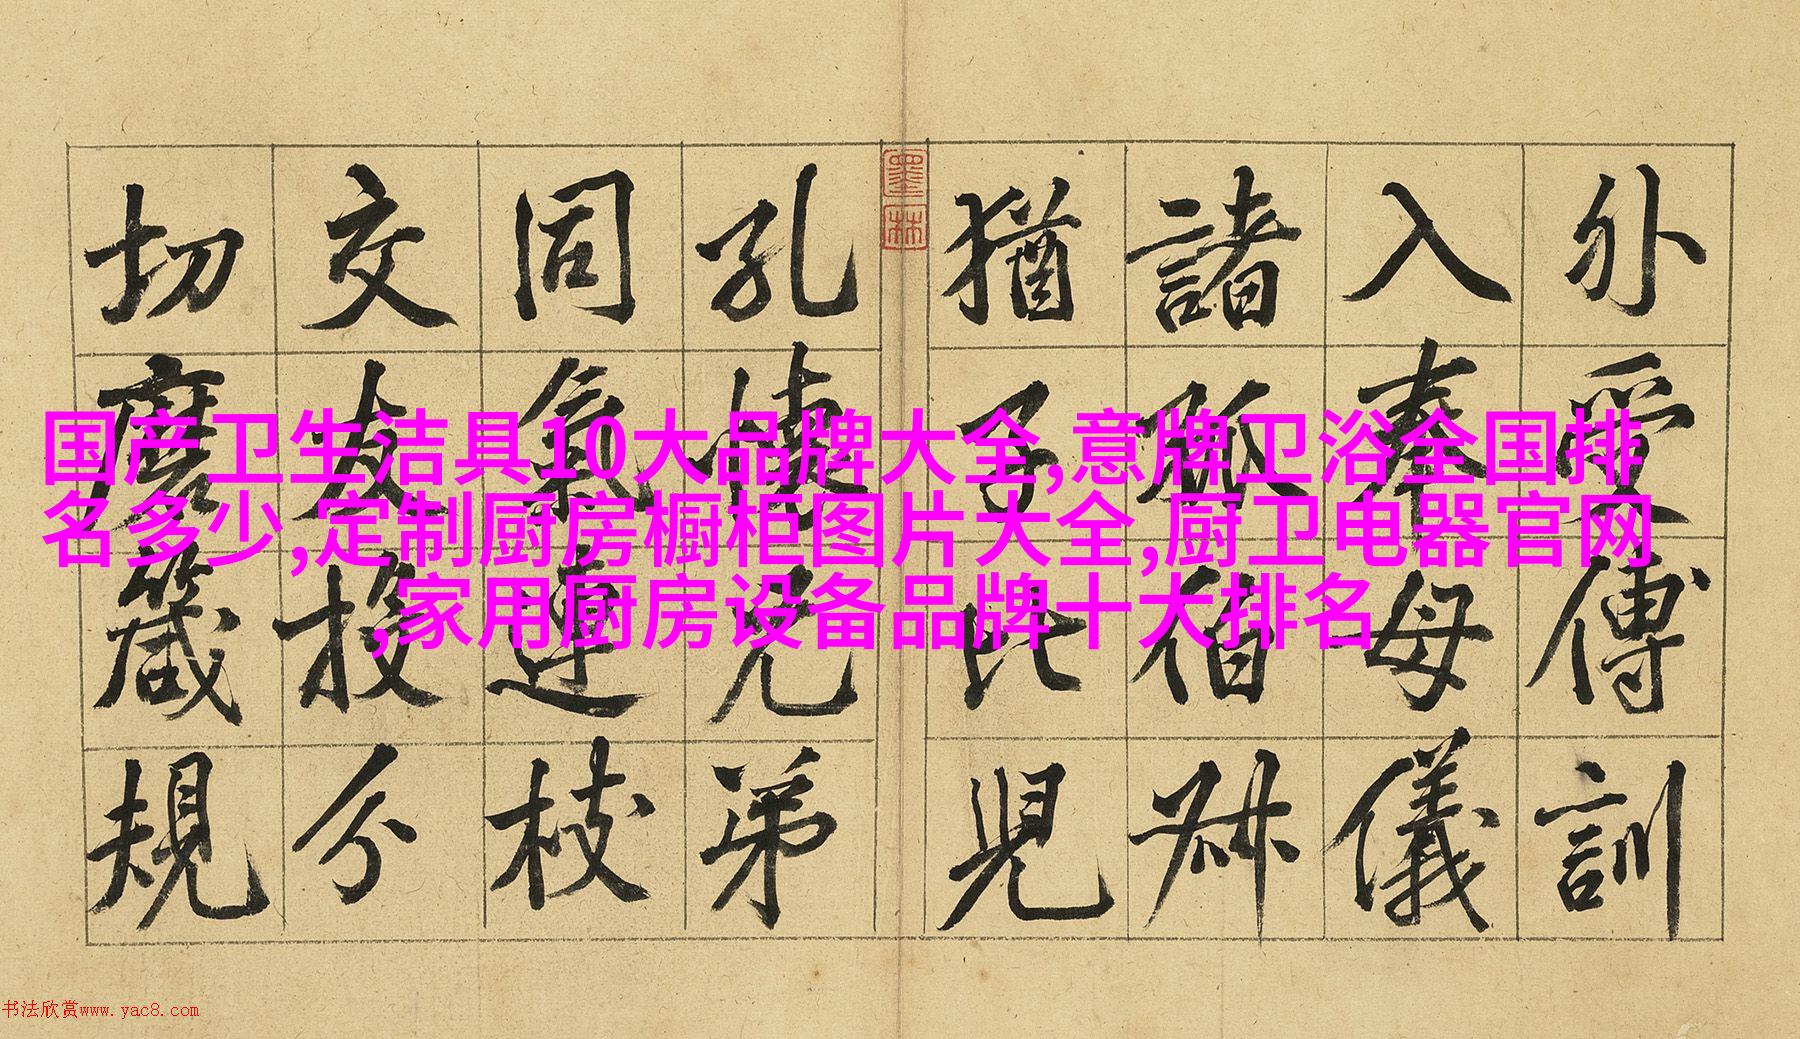 外受傅訓
入奉母儀
諸姑伯叔
猶子比兒
孔懷兄弟
同氣連枝
交友投分
切磨箴規
墨林
国产卫生洁具10大品牌大全,意牌卫浴全国排
名多少,定制厨房橱柜图片大全,厨卫电器官网
,家用厨房设备品牌十大排名
书法欣赏www.yac8.com